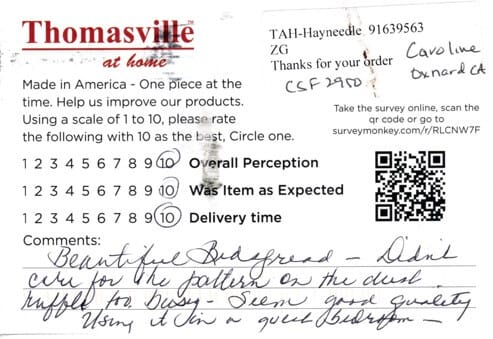 Thomasville
at home
TAH-Hayneedle 91639563
ZG
Thanks for your order
CSF 2950
Caroline
Oxnard CA
Made in America - One piece at the
time. Help us improve our products.
Using a scale of 1 to 10, please rate
the following with 10 as the best, Circle one.
Take the survey online, scan the
qr code or go to
surveymonkey.com/r/RLCNW7F
1 2 3 4 5 6 7 8 9 10 Overall Perception
1 2 3 4 5 6 7 8 9 10 Was Item as Expected
1 2 3 4 5 6 7 8 9 10 Delivery time
Comments:
Beautiful Bedspread - Didn't
care for the pattern on the dust
ruffle too busy - Seem good quality
Using it in a guest bedroom -